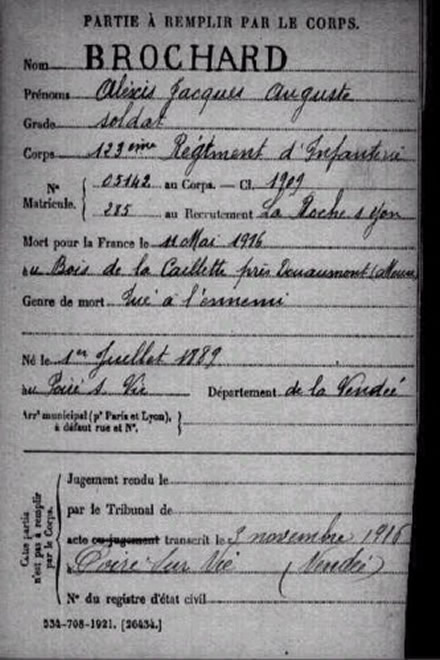 PARTIE À REMPLIR PAR LE CORPS.
Nom BROCHARD
Prénoms Alexis Jacques Auguste
Grade soldat
Corps 123ème Régiment d'Infanterie
N° Matricule. { 05142 au Corps. — Cl. 1909
285 au Recrutement La Roche s Yon
Mort pour la France le 11 Mai 1916
au Bois de la Caillette près Douaumont (Meuse
Genre de mort Tué à l'ennemi
Né le 1er Juillet 1889
au Poiré s. Vie Département de la Vendée
Arrt municipal (pr Paris et Lyon), à défaut rue et N°. }
Cette partie n'est pas à remplir par le Corps.
Jugement rendu le
par le Tribunal de
acte ou jugement transcrit le 3 novembre 1916
à Poiré sur Vie (Vendée)
N° du registre d'état civil
534-708-1921. [26434.]